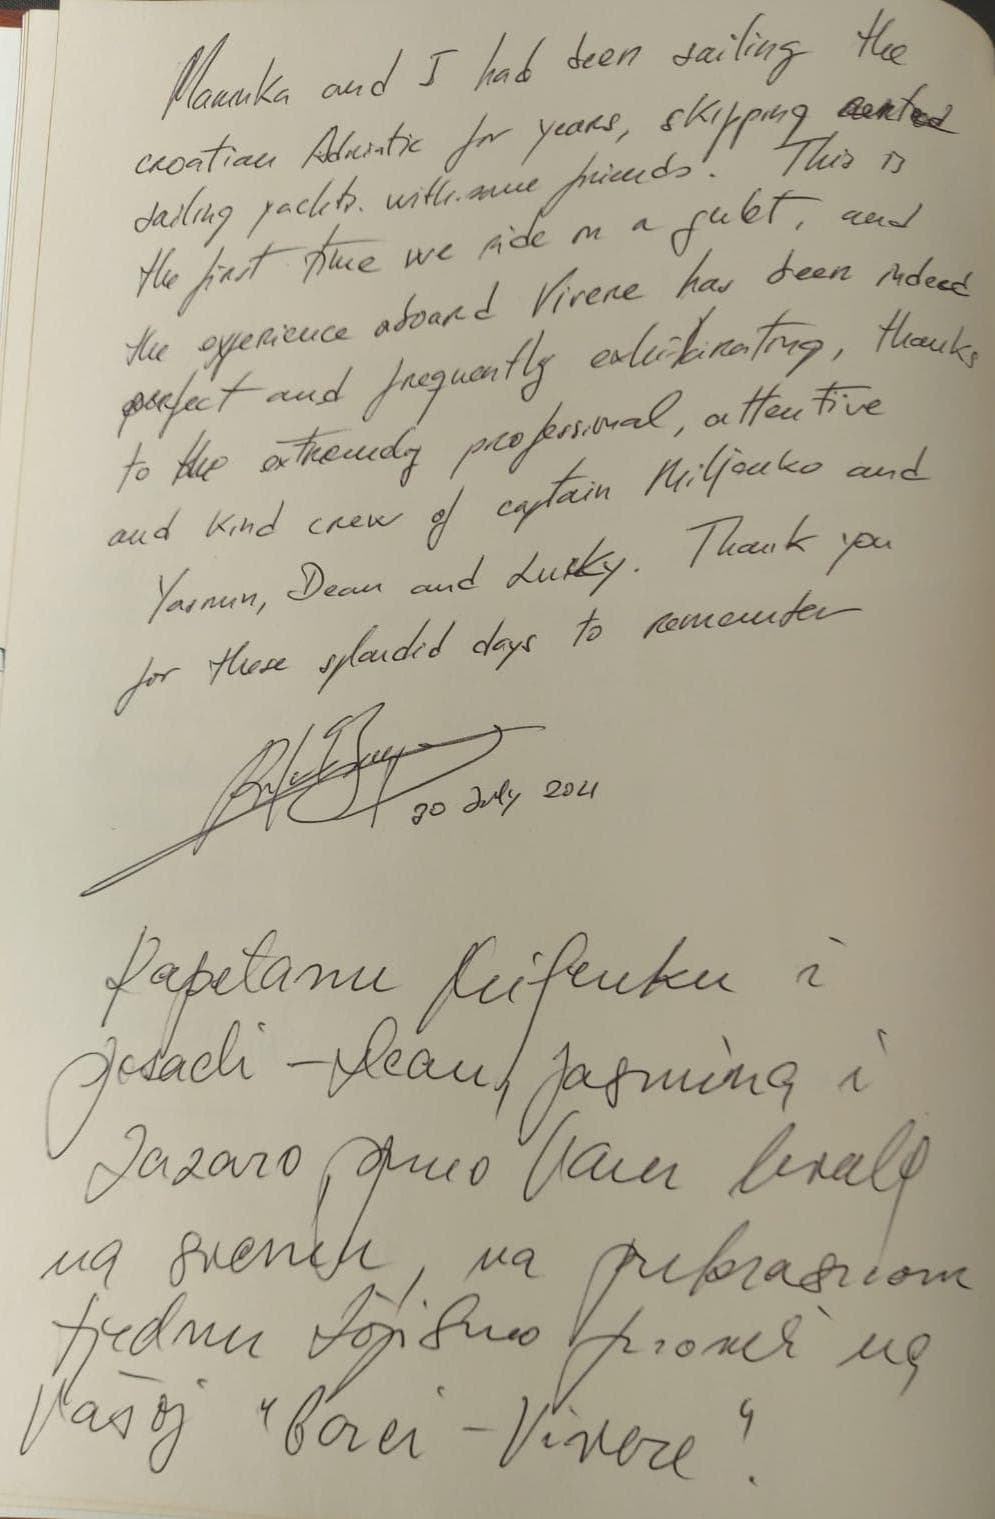 Marinka and I had been sailing the
croatian Adriatic for years, skipping
sailing yachts with some friends. This is
the first time we ride on a gulet, and
the experience aboard Vivere has been indeed
perfect and frequently exhilarating, thanks
to the extremely professional, attentive
and kind crew of captain Miljenko and
Yasmin, Dean and Lucky. Thank you
for these splendid days to remember
30 July 2021
Kapetanu Miljenku i
posadi - Dean, Jasmina i
Lazaro, puno Vam hvala
na svemu, na prekrasnom
tjednu što smo proveli na
Vašoj "barci - Vivere".